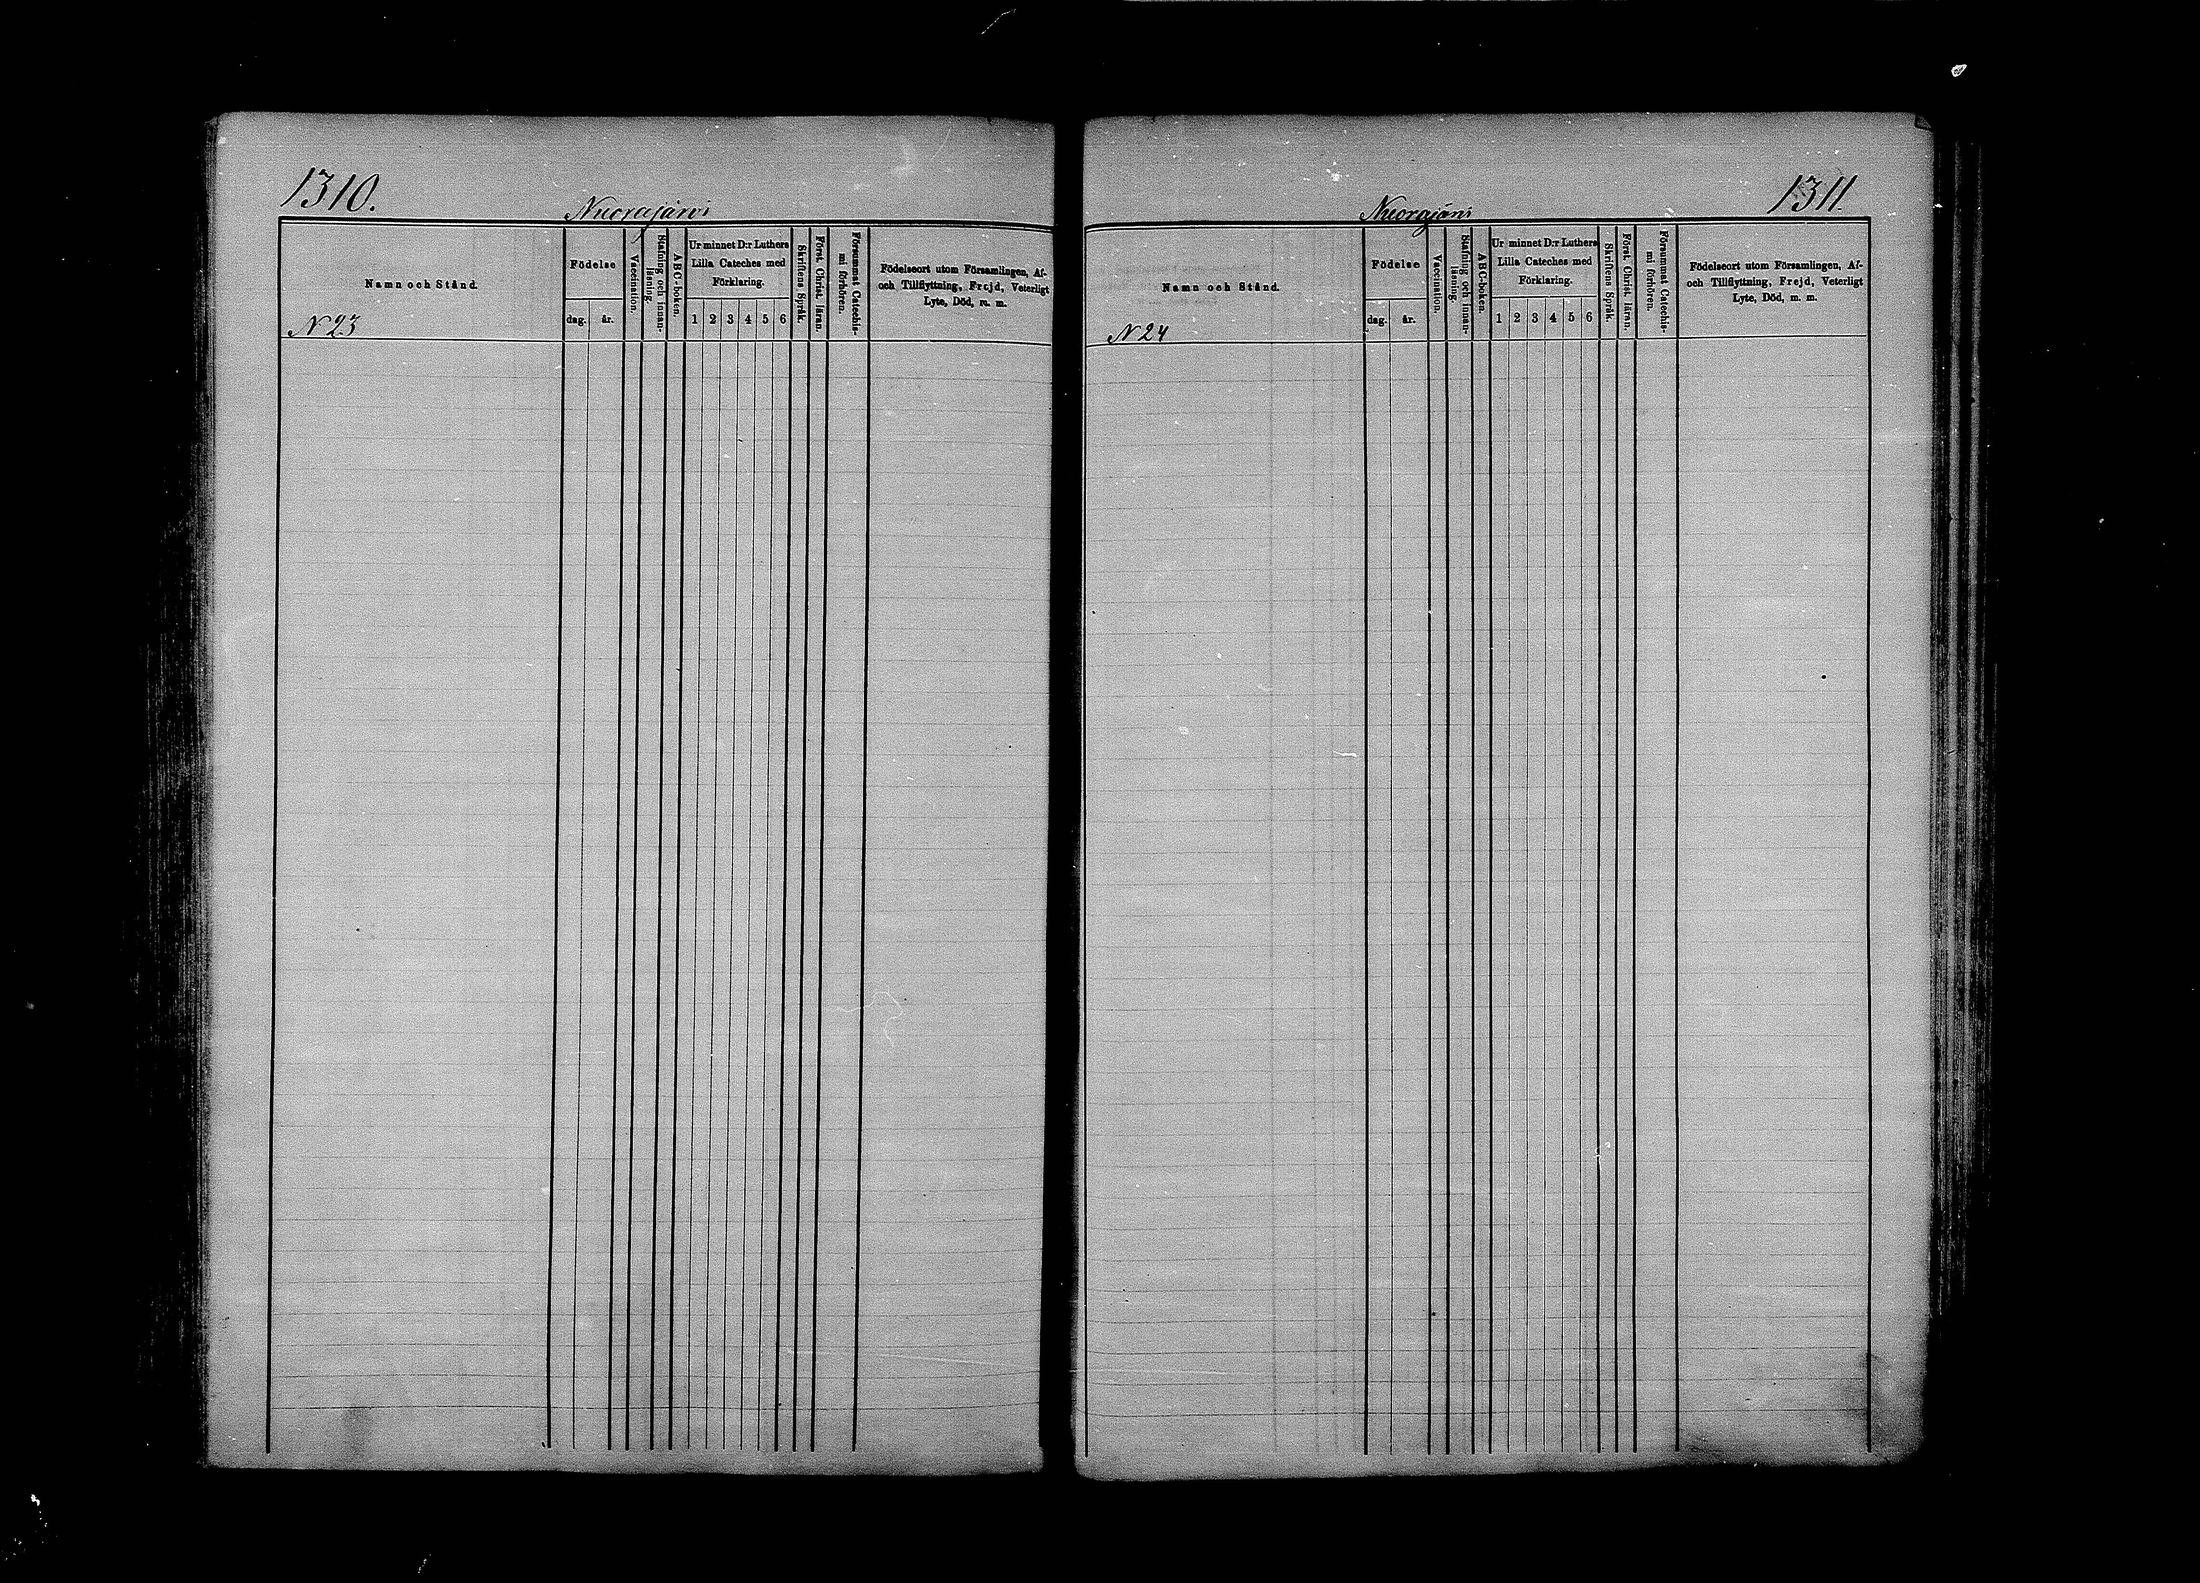 1310.
Nuorajärvi
Namn och Stånd.
Födelse
dag.
år.
Vaccination.
Stafning och innan-
läsning.
ABC-boken.
Ur minnet D:r Luthers
Lilla Cateches med
Förklaring.
1 2 3 4 5 6
Skriftens Språk.
Först. Christ. läran.
Försummat Catechis-
mi förhören.
Födelseort utom Församlingen, Af-
och Tillflyttning, Frejd, Veterligt
Lyte, Död, m. m.
N 23
1311.
Nuorajärvi
Namn och Stånd.
Födelse
dag.
år.
Vaccination.
Stafning och innan-
läsning.
ABC-boken.
Ur minnet D:r Luthers
Lilla Cateches med
Förklaring.
1 2 3 4 5 6
Skriftens Språk.
Först. Christ. läran.
Försummat Catechis-
mi förhören.
Födelseort utom Församlingen, Af-
och Tillflyttning, Frejd, Veterligt
Lyte, Död, m. m.
N 24